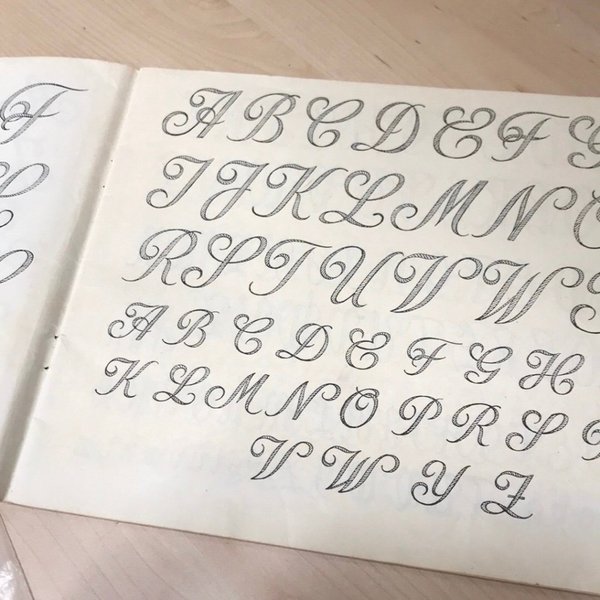 F
A B C D E F G
I J K L M N
R S T U V W
A B C D E F G H
K L M N O P R S
V W Y Z